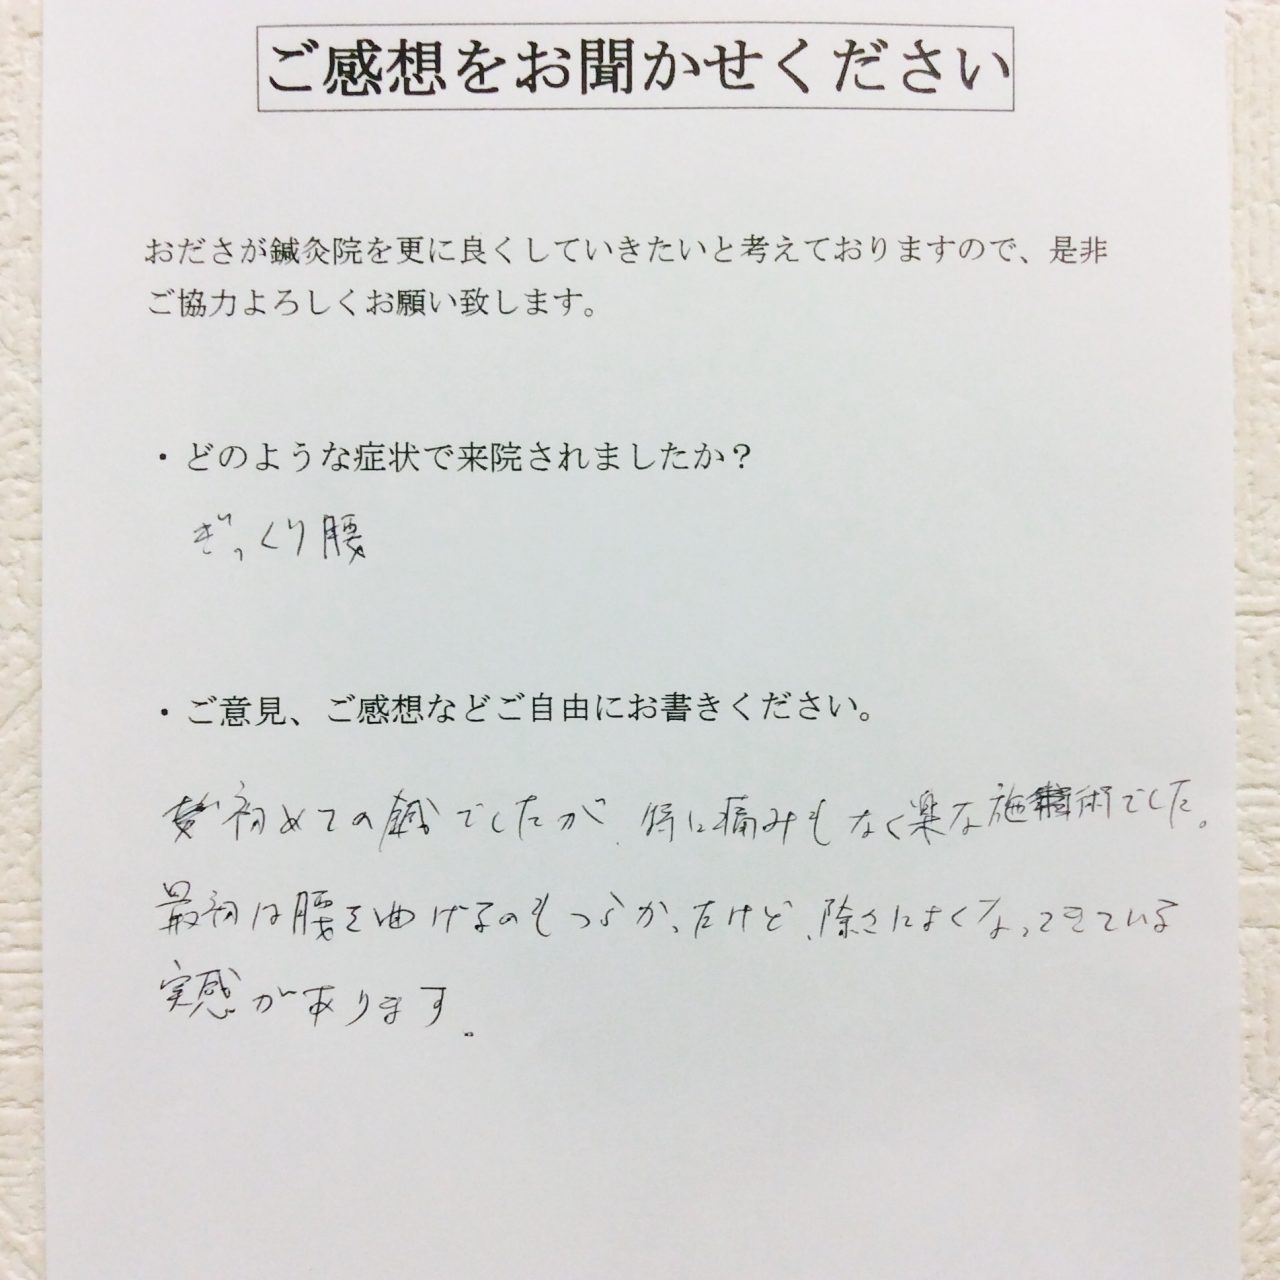 ご感想をお聞かせください
おださが鍼灸院を更に良くしていきたいと考えておりますので、是非
ご協力よろしくお願い致します。
・どのような症状で来院されましたか？
ぎっくり腰
・ご意見、ご感想などご自由にお書きください。
初めての鍼でしたが、特に痛みもなく楽な施術でした。
最初は腰を曲げるのもつらかったけど、除々によくなってきている
実感があります。